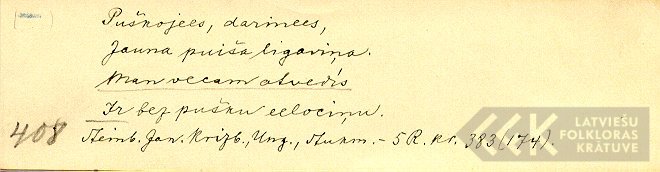 Puškojees, darinees,
Jauna puiša ligaviņa.
Man vecam atvedīs
Ir bez pušku eelociņu.
408 Steinb. Jan. Krizb., Ung., Stukm. – 5 R. kr. 383 (174).
LATVIEŠU
FOLKLORAS
KRĀTUVE